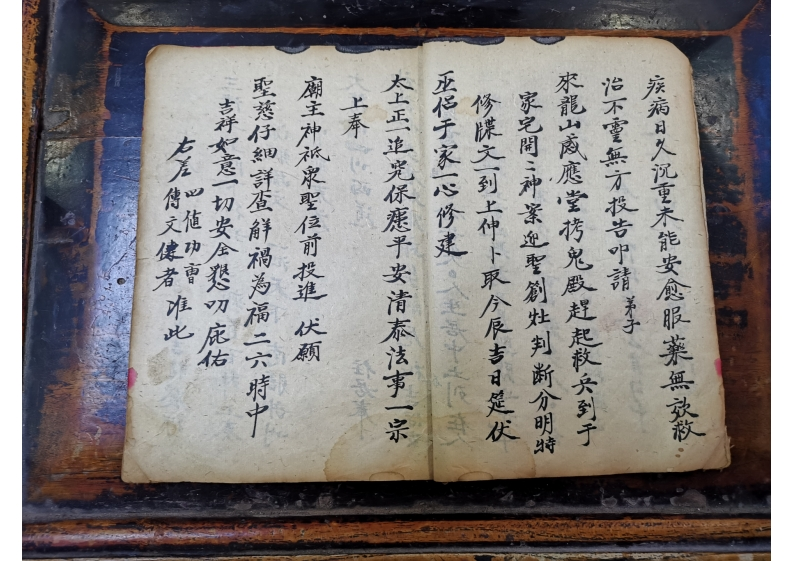 疾病日久沉重未能安愈服藥無效救
治不靈無方投告叩請弟子
來龍山感應堂拷鬼殿趕起救兵到于
家宅開二神案迎聖劄壯判断分明時
修牒文一到上伸卜取今辰吉日筵伏
巫侣于家一心修建
太上正一追究保應平安清泰法事一宗
上奉
廟主神祇衆聖位前投進 伏願
聖慈仔細詳查解禍為福二六時中
吉祥如意一切安全懇叨庇佑
右差四值功曹
傳文使者 准此